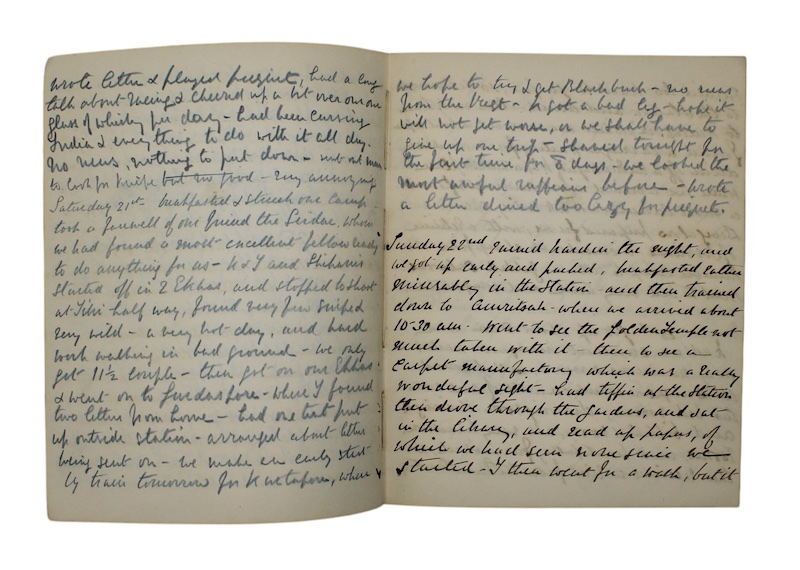 wrote letter & played picquet, had a long
talk about & cheered up a bit over our one
glass of whisky per day - had been cursing
India & everything to do with it all day.
No news, nothing to put down - went out
to look for snipe but no good - very annoying
Saturday 21st breakfasted & struck our camp
took a farewell of our friend the Sirdar, whom
we had found a most excellent fellow ready
to do anything for us - K & I and Shikaris
started off in 2 Ekkas, and stopped to shoot
at Tibri half way, found very few snipe &
very wild - a very hot day, and hard
work walking in bad ground - we only
got 11½ couple - then got on our Ekkas
& went on to Gurdaspore - where I found
two letters from home - had our tent put
up outside station - arranged about letters
being sent on - we make an early start
by train tomorrow for, where
we hope to try & get Blackbuck - no news
from the - K got a bad leg - hope it
will not get worse, or we shall have to
give up our trip - shaved tonight for
the first time for 8 days - we looked the
most awful ruffians before - wrote
a letter dined too lazy for picquet.
Sunday 22nd rained hard in the night, and
we got up early and packed, breakfasted rather
miserably in the Station and then trained
down to Amritsar - where we arrived about
10-30 am - went to see the Golden Temple not
much taken with it - then to see a
Carpet manufactory which was a really
wonderful sight - had tiffin at the Station
then drove through the Gardens, and sat
in the library, and read up papers, of
which we had seen none since we
started - I then went for a walk, but it